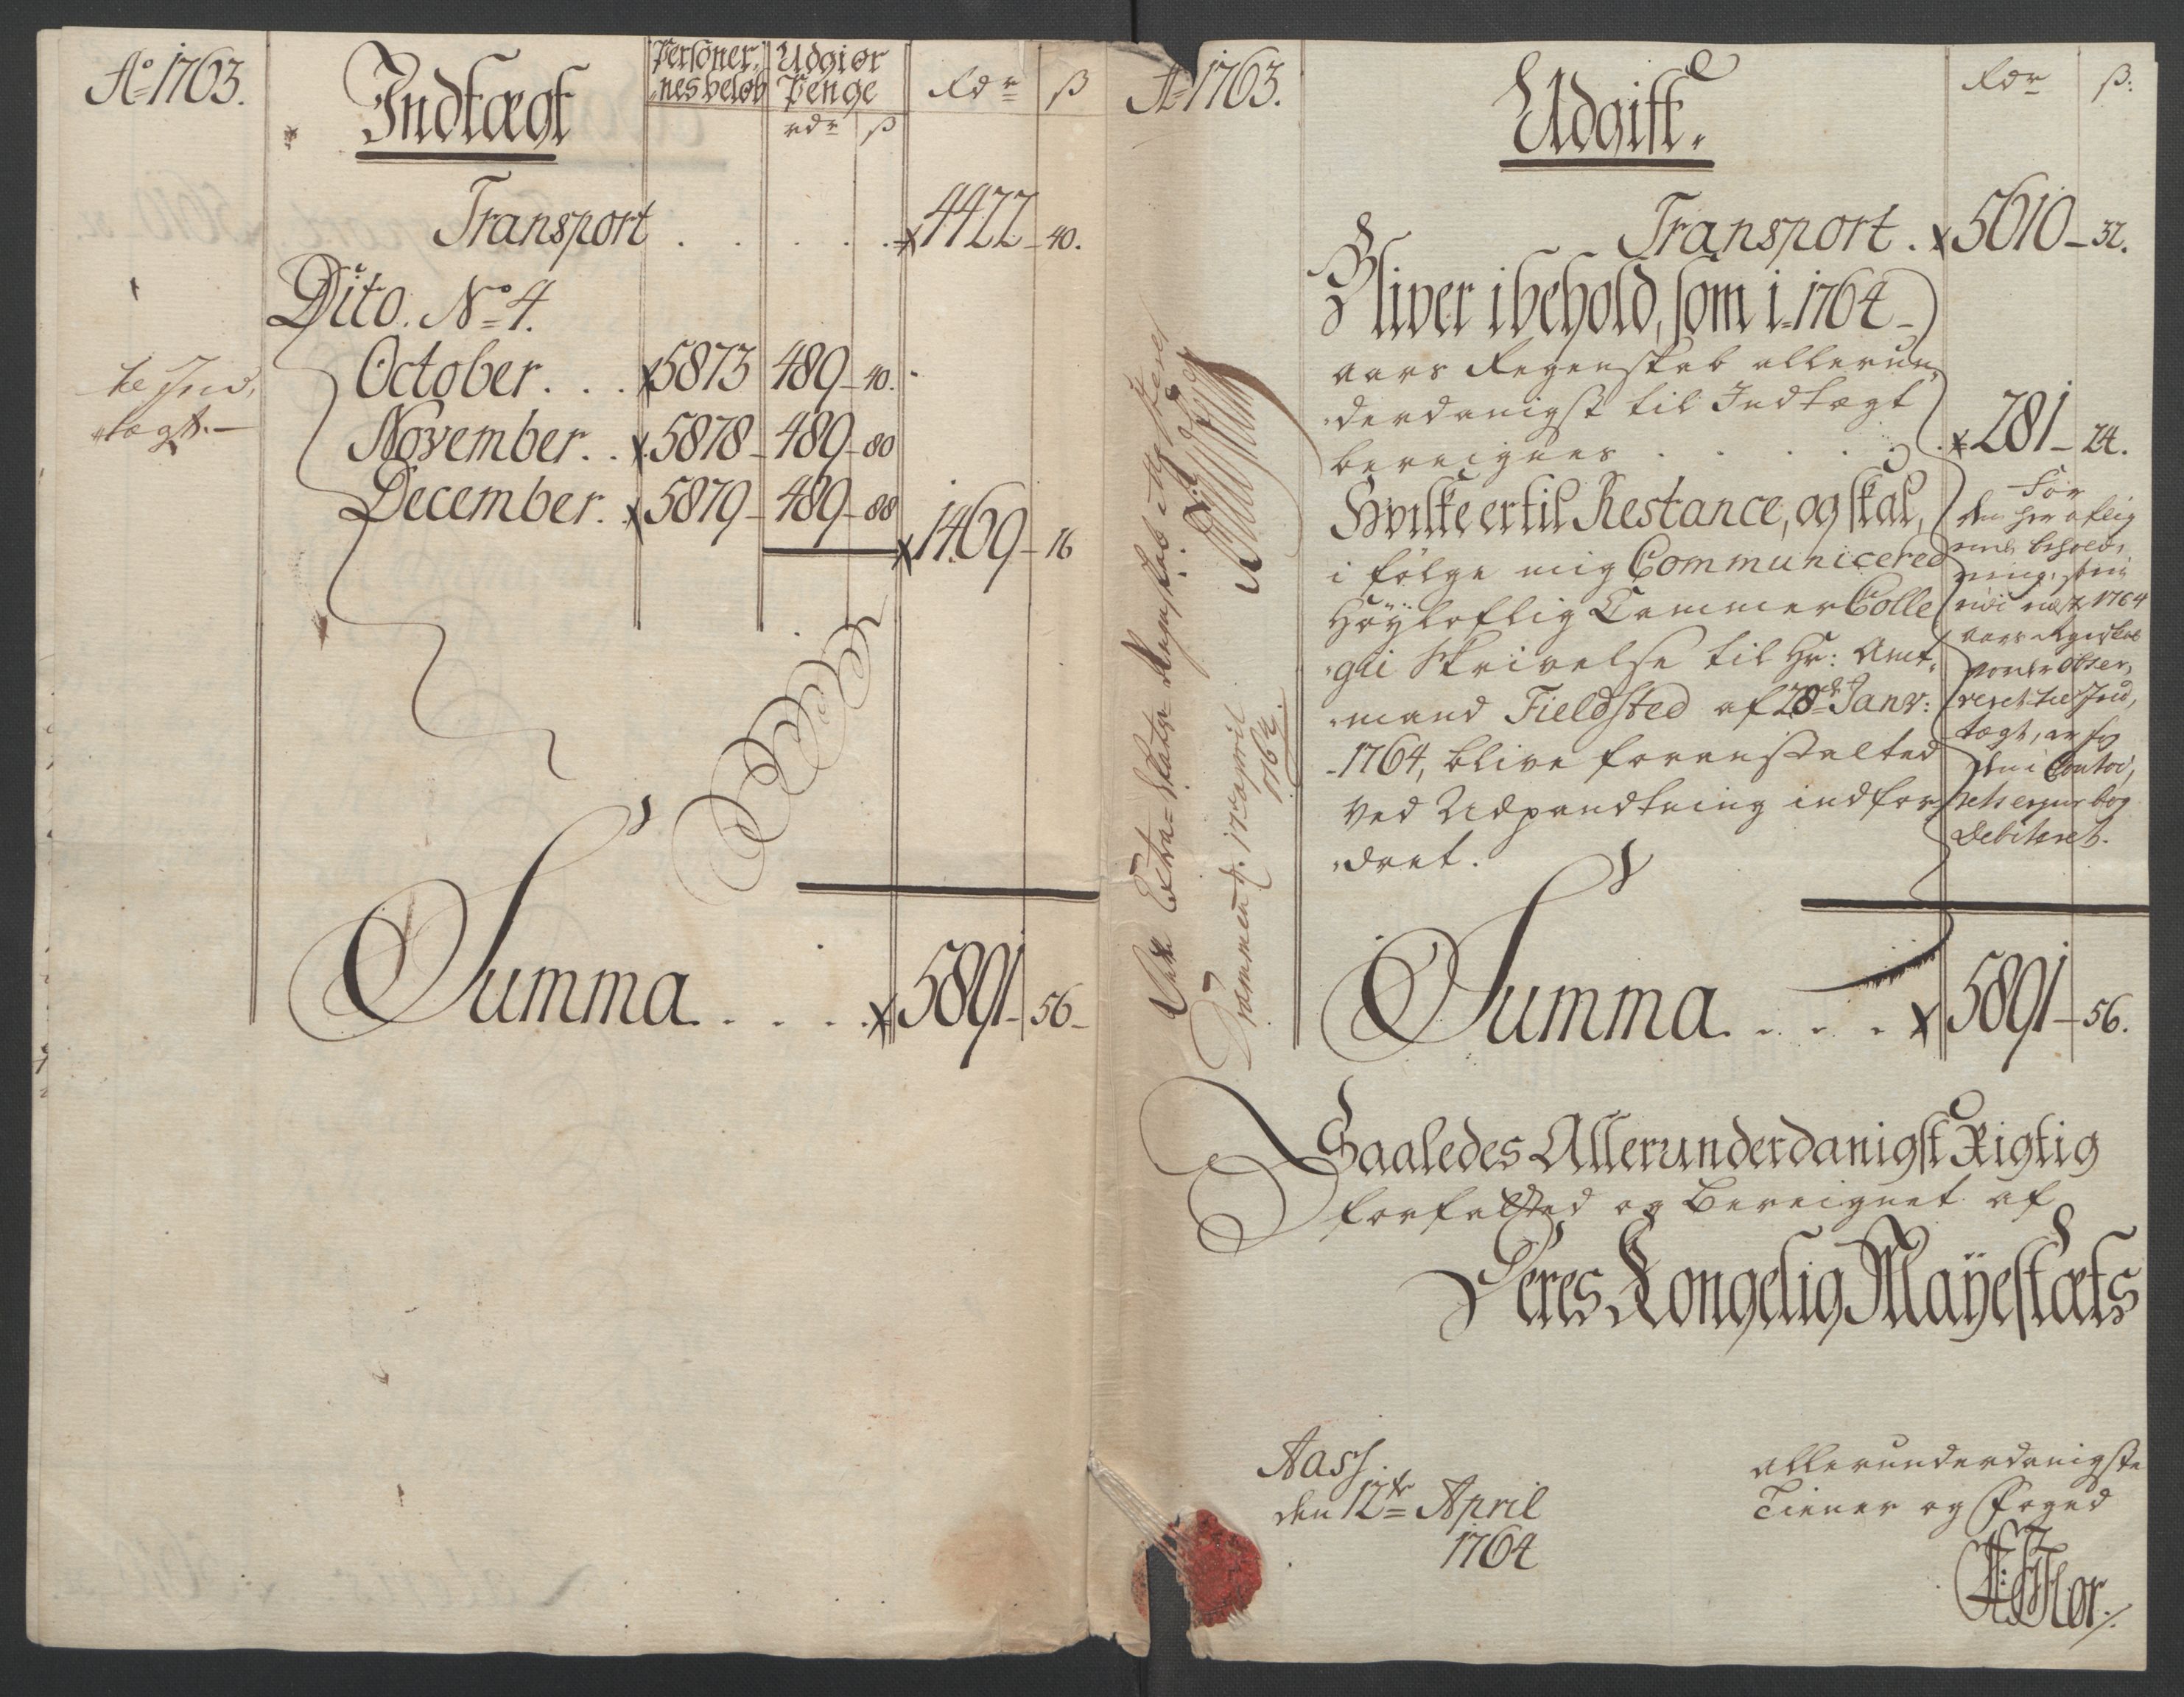 Ao 1763.
Indtægt
Personer-
nes beløb
Udgiør
Penge
rdr ß
Rdr ß
Transport . . . . . 4422 - 40.
Dito. No 4.
October. . . 5873 489 - 40.
November. . 5878 - 489 - 80
December. 5879 - 489 - 88
1469 - 16
te Ind,
tægt. -
Summa . . . . 5891 - 56 -
Dette Extra-Skatte Regnskab
Drammen d. 17de april
1764.
Ao 1763.
Udgift.
Rdr ß:
Transport . 5610 - 32.
Bliver i behold, som i 1764 -
aars Regenskab allerun,
derdanigst til Indtægt
bereignes . . . . . 281 - 24.
Hvilke er til Restance, og skal,
i følge mig Communicered
Høÿloflig Cammer Colle
gii Skrivelse til Hr: Amt,
mand Fieldsted af 28de Janv:
1764, blive foranstalted
ved Udpandtning indfor
dret.
For
den her
behold,
ning, som
udi næst 1764
aars
vorder obser,
veret til Ind,
tægt, er
den i Contoi,
bog
Debiteret.
Summa . . . . 5891 - 56.
Saaledes Allerunderdanigst Rigtig
forfatted og Bereignet af
Deres Kongelig Maÿestæts
Aass
den 12te April
1764
allerunderdanigste
Tiener og Foged
Flor.